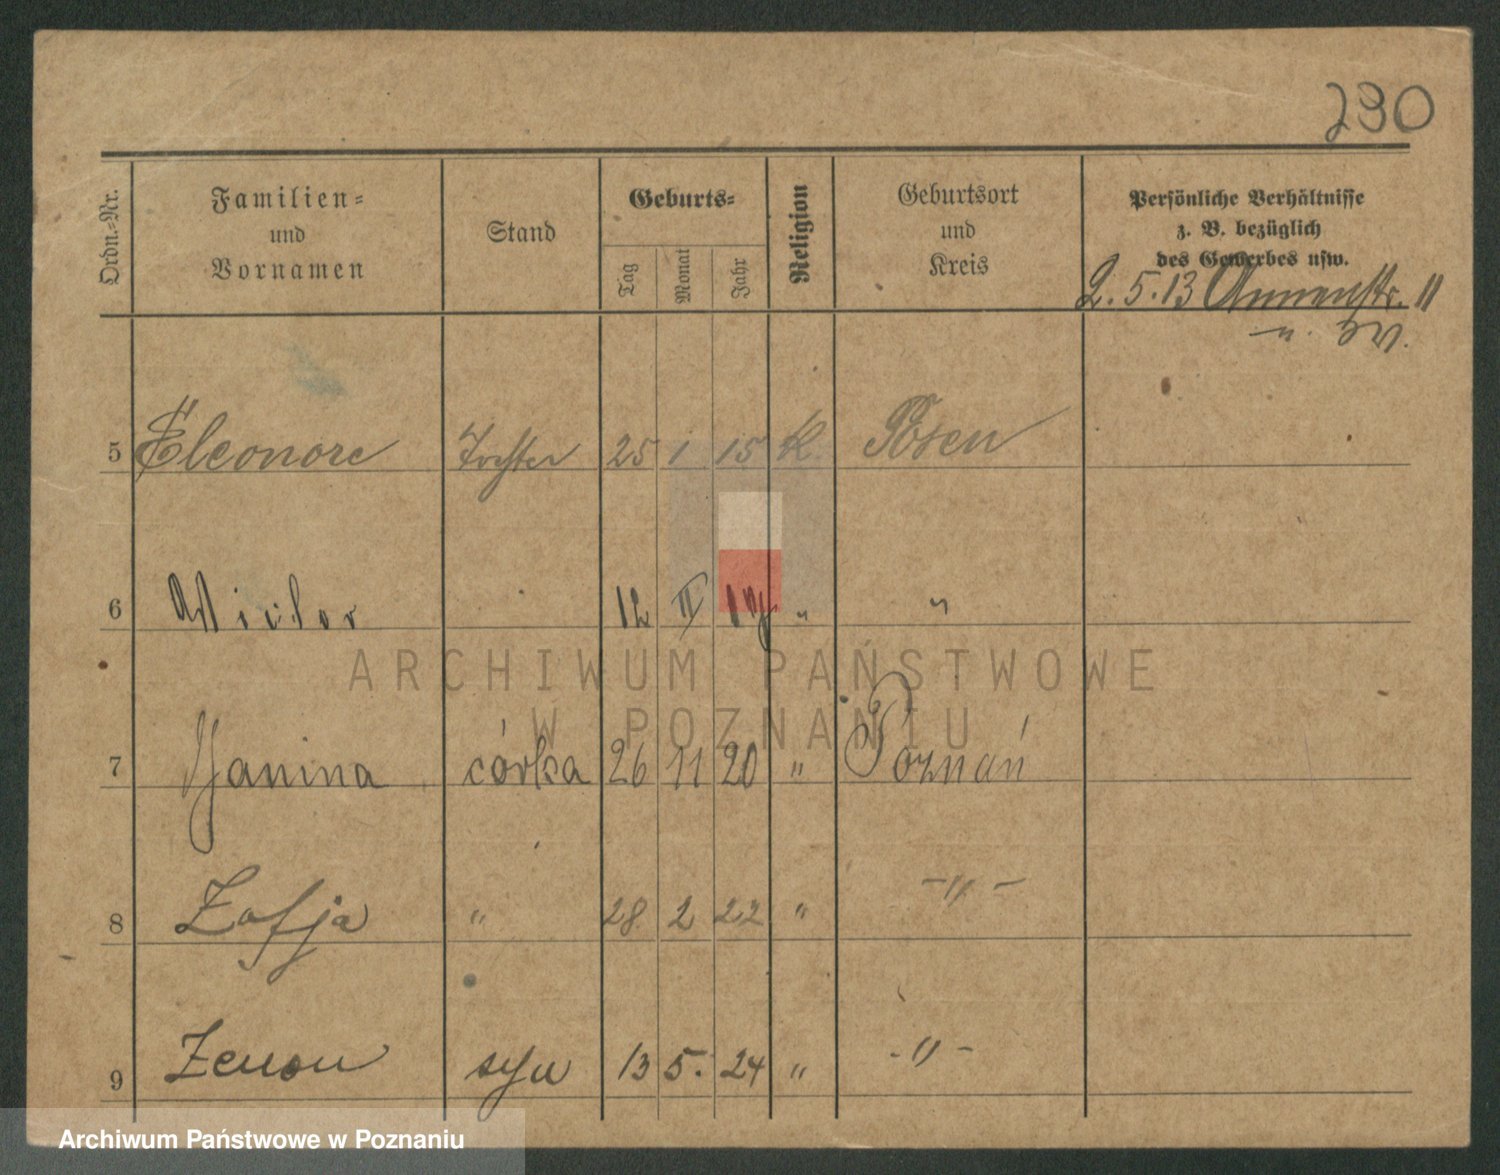 230
Ordn.-Nr.
Familien-
und
Vornamen
Stand
Geburts-
Tag
Monat
Jahr
Religion
Geburtsort
und
Kreis
Persönliche Verhältnisse
z. B. bezüglich
des Gewerbes usw.
2. 5. 13 Annenstr. 11
5 Eleonore Tochter 25 1 15 K. Posen
6 12 II " "
7 Janina córka 26 11 20 " Poznań
8 Zofja " 28 2 22 " -"-
9 Zenon syn 13 5. 24 " -"-
ARCHIWUM PAŃSTWOWE
W POZNANIU
Archiwum Państwowe w Poznaniu